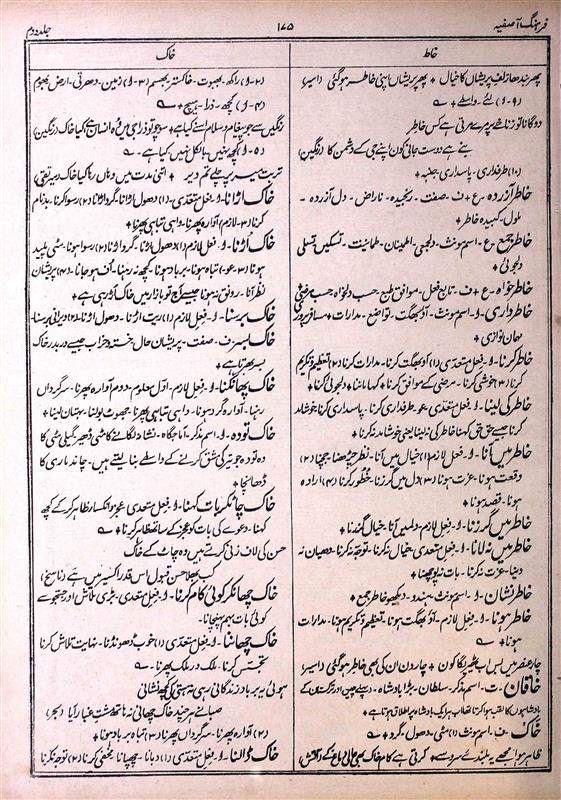 فرہنگ آصفیہ
۱۷۵
جلد دوم
خاط
خاک
پھر بندھا زلف پریشاں کا خیال + پھر پریشاں اپنی خاطر ہوگئی (اسیر)
(۹-۱) لئے۔ واسطے +
دوگانا تو زناخی پہ مرے مرتی ہے کس خاطر
بنے ہے دوست جانی کون اپنے جی کے دشمن کا (رنگین)
(۱۰) طرفداری۔ پاسداری۔ جنبہ +
خاطر آزردہ۔ ع + ف۔ صفت۔ رنجیدہ۔ ناراض۔ دل آزردہ۔
ملول۔ کبیدہ خاطر +
خاطر جمع۔ ع۔ اسم مونث۔ دلجمعی۔ اطمینان۔ طمانیت۔ تسکین۔ تسلی
دلجوئی +
خاطر خواہ۔ ع + ف۔ تابع فعل۔ موافق طبع۔ حسب دلخواہ۔ حسب مرضی
خاطر داری۔ ا۔ اسم مونث۔ آؤ بھگت۔ تواضع۔ مدارات + مسافر پروری
مہمان نوازی +
خاطر کرنا۔ ا۔ فعل متعدی (۱) آؤ بھگت کرنا۔ مدارات کرنا (۲) تعظیم و تکریم
کرنا (۳) خوشی کرنا۔ مرضی کے موافق کرنا + کہا ماننا + دلجوئی کرنا +
خاطر کی لینا۔ ا۔ فعل متعدی۔ عو۔ طرفداری کرنا۔ پاسداری کرنا۔ خوشامد
کرنا جیسے حق حق کہنا خاطر کی نہ لینا یعنی خوشامد نہ کرنا +
خاطر میں آنا۔ ا۔ فعل لازم (۱) خیال میں آنا۔ نظر پر چڑھنا۔ جچنا (۲)
وقعت ہونا۔ عزت ہونا (۳) دل میں گزرنا۔ خطور کرنا (۴) ارادہ
ہونا۔ قصد ہونا +
خاطر میں گزرنا۔ ا۔ فعل لازم۔ دل میں آنا۔ خیال گذرنا +
خاطر میں نہ لانا۔ ا۔ فعل متعدی۔ خیال نہ کرنا۔ توجہ نہ کرنا۔ دھیان نہ
دینا۔ عزت نہ کرنا۔ بات نہ پوچھنا +
خاطر نشان۔ ا۔ اسم مونث۔ ہندو۔ دیکھو خاطر جمع +
خاطر ہونا۔ ا۔ فعل لازم۔ آؤ بھگت ہونا۔ تعظیم و تکریم ہونا۔ مدارات
ہونا +
چار عنصر میں بس اب پتھر لگا کون + چار دن ان کی بھی خاطر ہوگئی (اسیر)
خاقان۔ ت۔ اسم مذکر۔ سلطان۔ بڑا بادشاہ۔ پہلے چین اور ترکستان کے
بادشاہوں کا لقب ہوا کرتا تھا اب ہر ایک بادشاہ پر اطلاق ہوتا ہے +
خاک۔ ف۔ اسم مونث (۱) مٹی۔ دھول۔ گرد +
ظاہر ہوا مجھے یہ بلندی سے سرو سے + کرتی ہے کام خاک بھی عالی دماغ کے (آتش)
(۲-۱) راکھ۔ بھبوت۔ خاکستر۔ بھسم (۳-۱) زمین۔ دھرتی۔ ارض۔ بھوم
(۴-۱) کچھ۔ ذرا۔ ہیچ +
رنگیں سے جو پیغام و سلام اسنے کیا ہے + سوچو تو ذرا جی میں وہ انسان ہے کیا خاک (رنگین)
(۵-۱) کچھ نہیں۔ بالکل نہیں۔ کیا ہے۔
تربت میر پر چلے تم دیر + اتنی مدت میں وہاں رہا کیا خاک (میر تقی)
خاک اڑانا۔ ا۔ فعل متعدی۔ (۱) دھول اڑانا۔ گرد اڑانا (۲) رسوا کرنا۔ بدنام
کرنا (۳۔ لازم) آوارہ پھرنا۔ واہی تباہی پھرنا +
خاک اڑنا۔ ا۔ فعل لازم (۱) دھول اڑنا۔ گرد اڑنا (۲) رسوا ہونا۔ مٹی پلید
ہونا (۳۔ عو) تباہ ہونا۔ برباد ہونا۔ کچھ نہ رہنا۔ اف ہو جانا۔ (۴) پریشان
نظر آنا۔ رونق نہ ہونا جیسے آج کچھ تو بازار میں خاک اڑ رہی ہے +
خاک برسنا۔ ا۔ فعل لازم (۱) ریت اڑنا۔ دھول اڑنا۔ (۲) ویرانی برسنا۔
خاک بسر۔ ف۔ صفت۔ پریشان حال۔ خستہ و خراب جیسے در بدر خاک
بسر پھرتا ہے +
خاک پھانکنا۔ ا۔ فعل لازم۔ اول معلوم۔ دوم آوارہ پھرنا۔ سرگرداں
رہنا۔ آوارہ گرد ہونا۔ واہی تباہی پھرنا۔ جھوٹ بولنا۔ بہتان لینا +
خاک تودہ۔ ا۔ اسم مذکر۔ آماجگاہ۔ نشانہ لگانے کا مٹی ڈھیر۔ گیلی مٹی کا
وہ تودہ جو تیر کی مشق کرنے کے واسطے بنا لیتے ہیں۔ چاند ماری کا
ڈھانچا +
خاک چاٹکر بات کہنا۔ ا۔ فعل متعدی۔ عجز و انکسار ظاہر کر کے کچھ
کہنا۔ دعوے کی بات کو عجز کے ساتھ ظاہر کرنا +
حسن کی لاف زنی کرتے ہیں وہ چاٹ کے خاک
کب بھلا حسن قبول اس قدر اکسیر میں ہے (ناسخ)
خاک چھانکر کوئی کام کرنا۔ ا۔ فعل متعدی۔ بڑی تلاش اور جستجو سے
کوئی بات بہم پہنچانا +
خاک چھاننا۔ ا۔ فعل متعدی (۱) خوب ڈھونڈنا۔ نہایت تلاش کرنا
تجسس کرنا۔ ملک در ملک پھرنا۔
ہوئی یہ برباد زندگانی رہی نہ ہستی کی کچھ نشانی
صبا نے ہر چند خاک چھانی نہ ہاتھ مشت غبار آیا (بحر)
(۲) آوارہ پھرنا۔ سرگرداں پھرنا (۳) تباہ و برباد ہونا +
خاک ڈالنا۔ ا۔ فعل متعدی (۱) دبانا۔ چھپانا۔ مخفی کرنا (۲) توجہ نہ کرنا